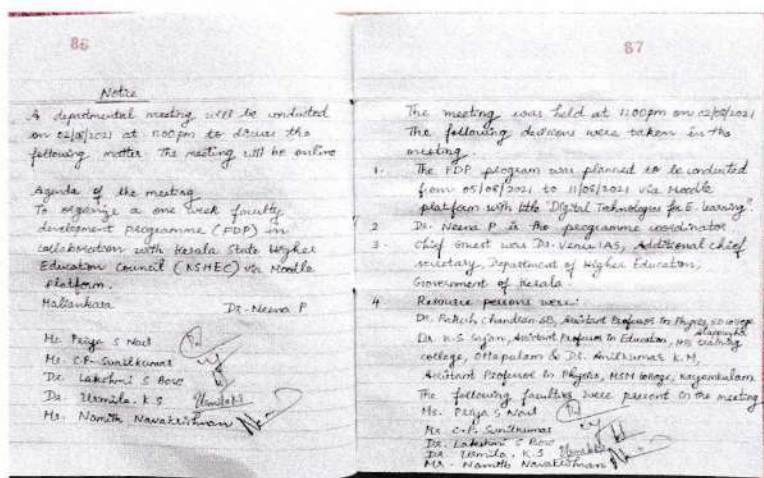 86
Notice
A departmental meeting will be conducted
on 02/08/2021 at 1:00pm to discuss the
following matter. The meeting will be online
Agenda of the meeting
To organize a one week faculty
development programme (FDP) in
collaboration with Kerala State Higher
Education Council (KSHEC) via Moodle
Platform.
Maliankara Dr. Neena P
Ms. Priya S
Mr. C.P. Sunilkumar
Dr. Lakshmi S Bose
Dr. Urmila. K.S
Mr. Namith Navakrishnan
87
The meeting was held at 1:00pm on 02/08/2021
The following decisions were taken in the
meeting.
1. The FDP program was planned to be conducted
from 05/08/2021 to 11/08/2021 via Moodle
platform with title "Digital Technologies for E-learning".
2 Dr. Neena P is the programme coordinator
3. Chief Guest was Dr. Venu IAS, Additional chief
secretary, Department of Higher Education,
Government of Kerala
4 Resource persons were:
Dr. Chandran Assistant Professor in Physics, SD college
Alappuzha
Dr. K.S Sajan, Assistant Professor in Education, NSS training
college, Ottapalam & Dr. Anilkumar K.M,
Assistant Professor in Physics, MSM College, Kayamkulam
The following faculties were present in the meeting
Ms. Priya S
Mr C.P. Sunilkumar
Dr. Lakshmi S Bose
Dr. Urmila. K.S
Mr. Namith Navakrishnan